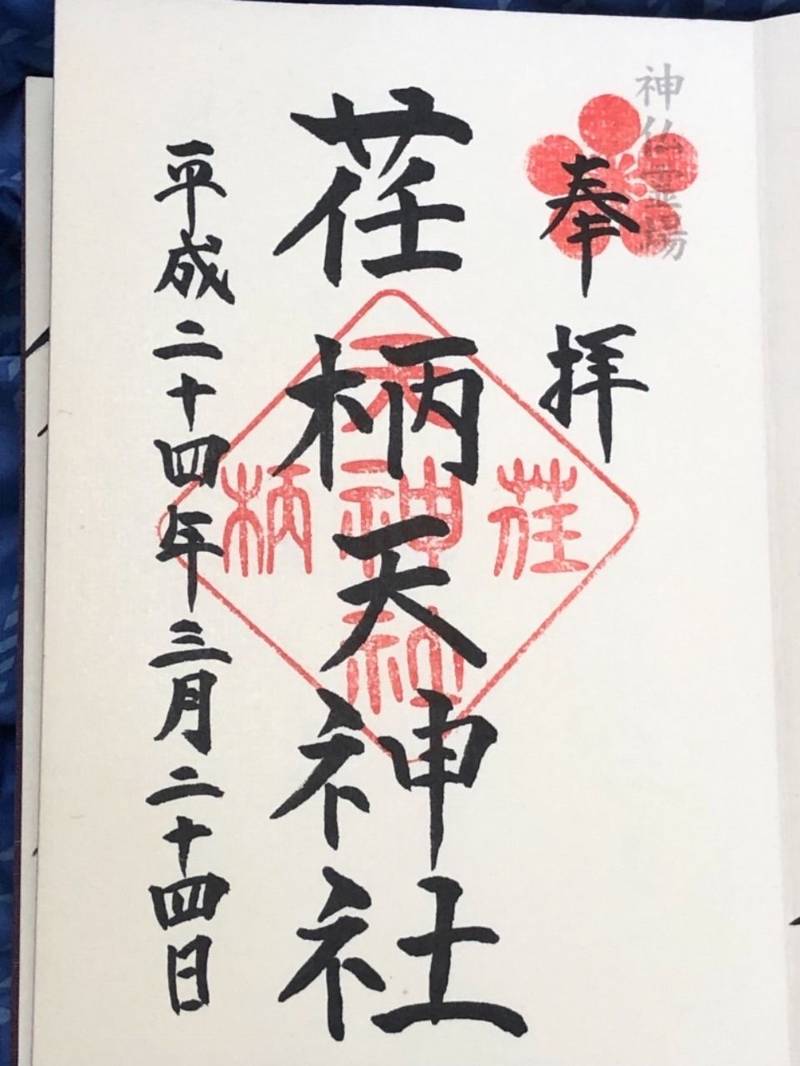 神仏霊場
奉拝
荏柄天神社
荏柄天神社
平成二十四年三月二十四日